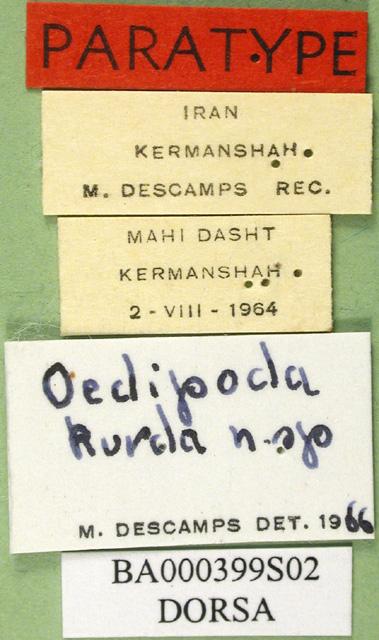 PARATYPE
IRAN
KERMANSHAH
M. DESCAMPS REC.
MAHI DASHT
KERMANSHAH
2 - VIII - 1964
Oedipoda
kurda n.sp
M. DESCAMPS DET. 1966
BA000399S02
DORSA